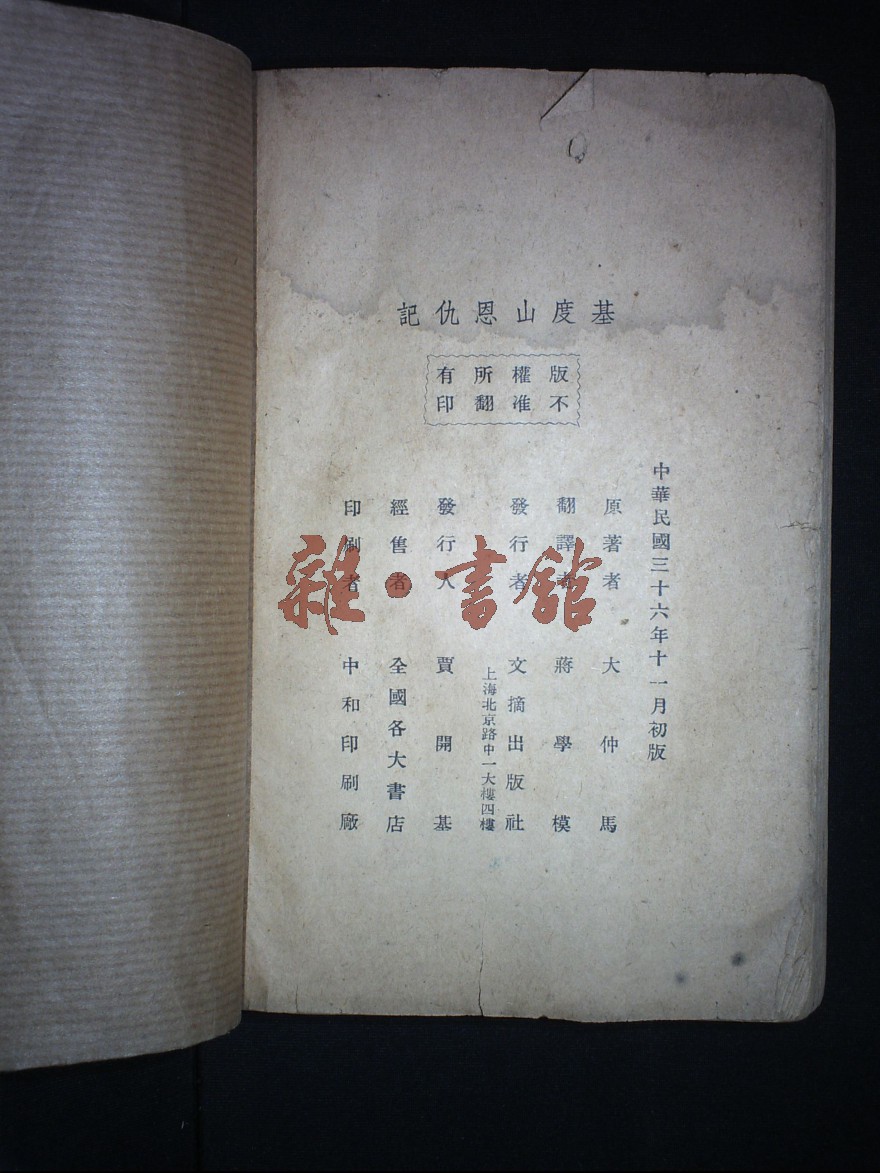 基度山恩仇記
版權所有
不准翻印
中華民國三十六年十一月初版
原著者 大仲馬
翻譯者 蔣學模
發行者 文摘出版社
上海北京路中一大樓四樓
發行人 賈開基
經售者 全國各大書店
印刷者 中和印刷廠
雜·書館